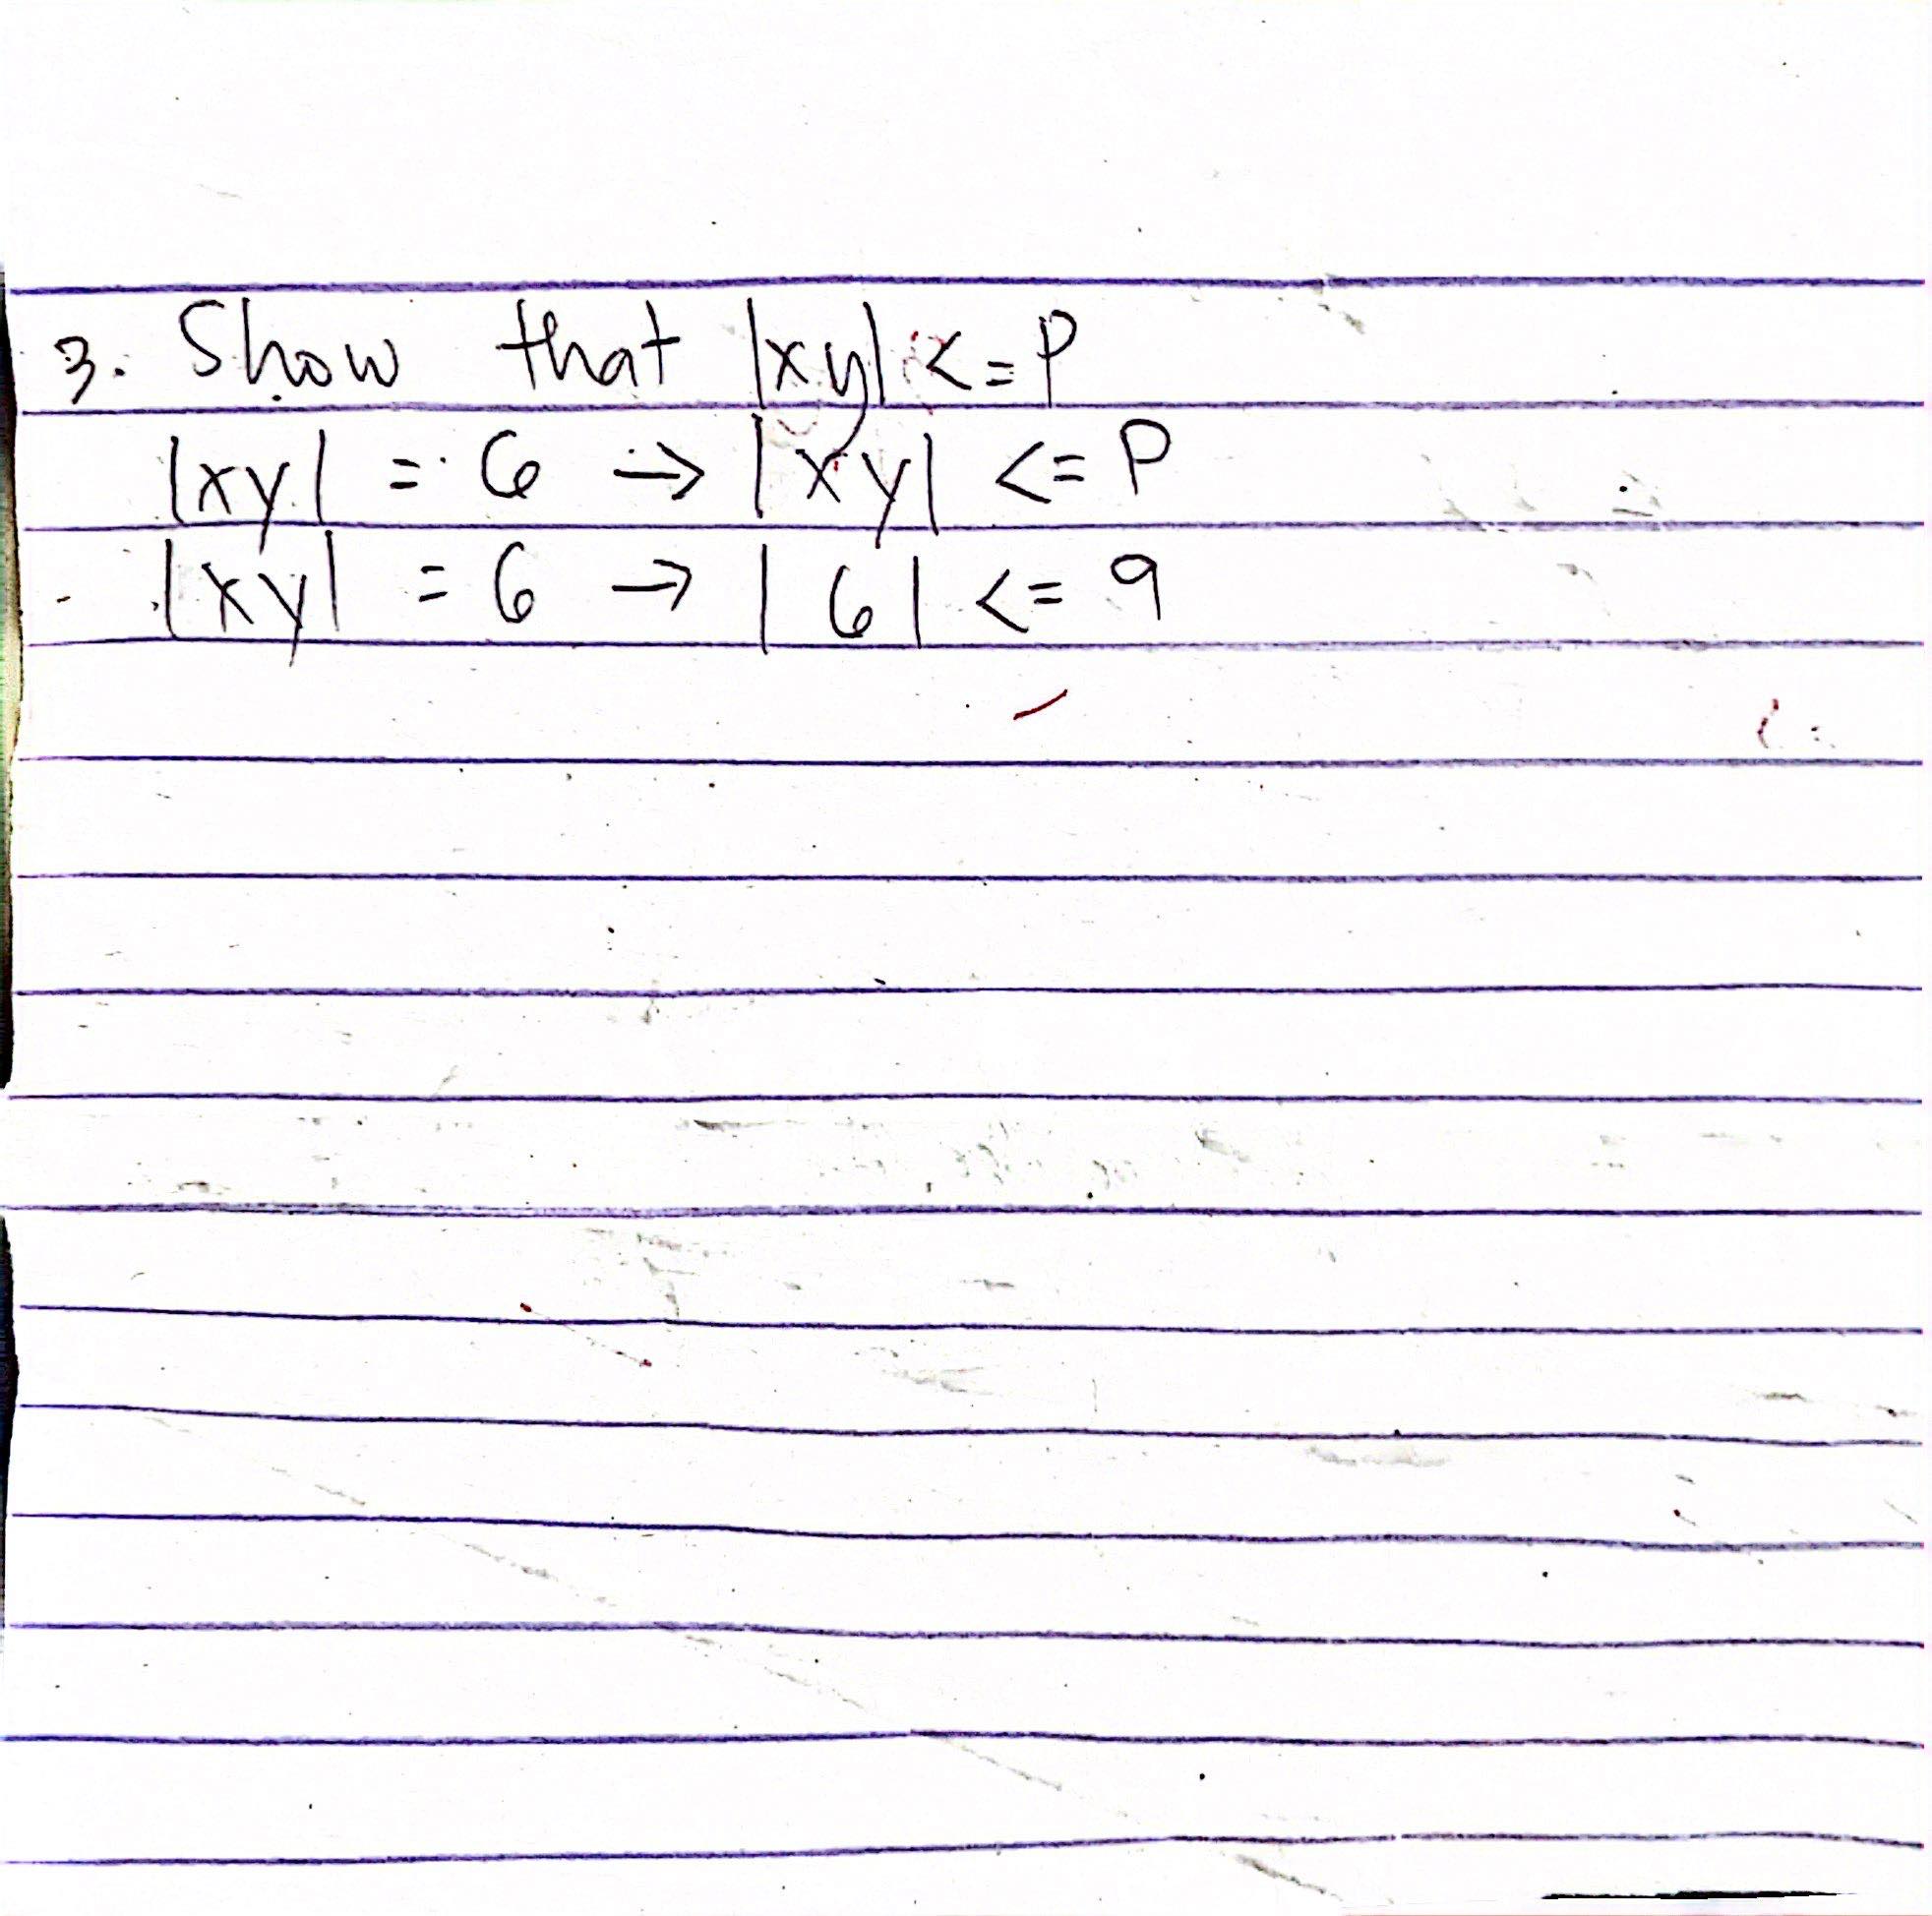 3. Show that |xy| <= P
|xy| = 6 → |xy| <= P
|xy| = 6 → |6| <= 9